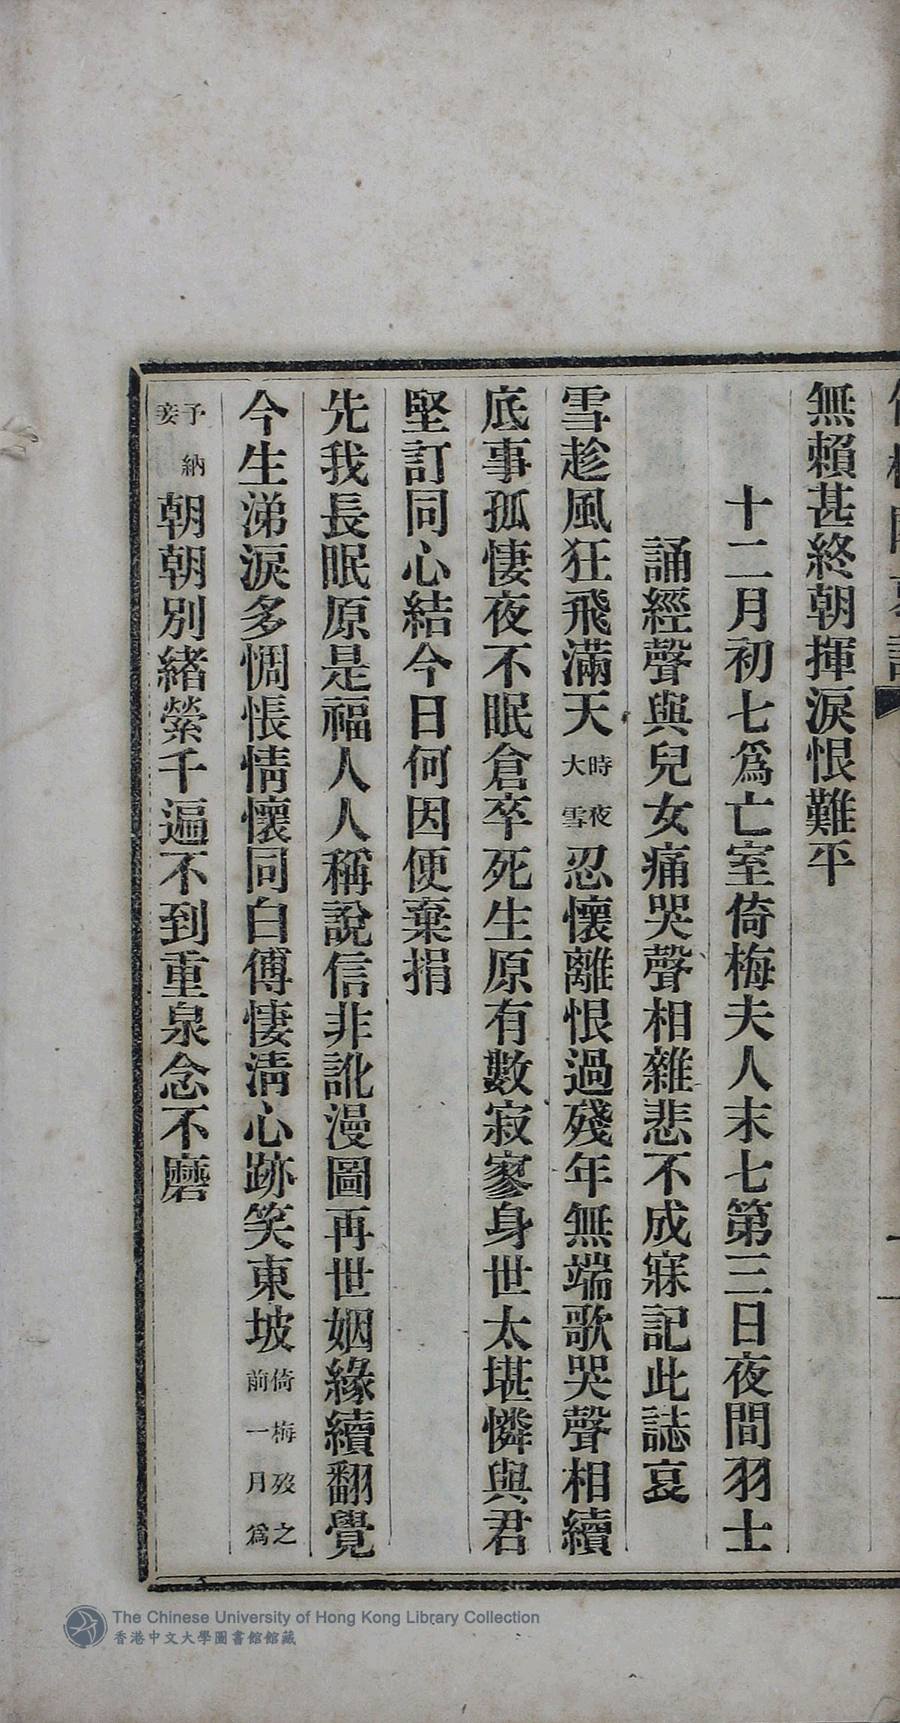 無賴甚終朝揮淚恨難平
十二月初七爲亡室倚梅夫人末七第三日夜間羽士
誦經聲與兒女痛哭聲相雜悲不成寐記此誌哀
雪趁風狂飛滿天時夜大雪忍懷離恨過殘年無端歌哭聲相續
底事孤悽夜不眠倉卒死生原有數寂寥身世太堪憐與君
堅訂同心結今日何因便棄捐
先我長眠原是福人人稱說信非訛漫圖再世姻緣續翻覺
今生涕淚多惆悵情懷同白傅悽清心跡笑東坡倚梅歿之前一月爲
予納妾朝朝別緒縈千遍不到重泉念不磨
The Chinese University of Hong Kong Library Collection
香港中文大學圖書館館藏